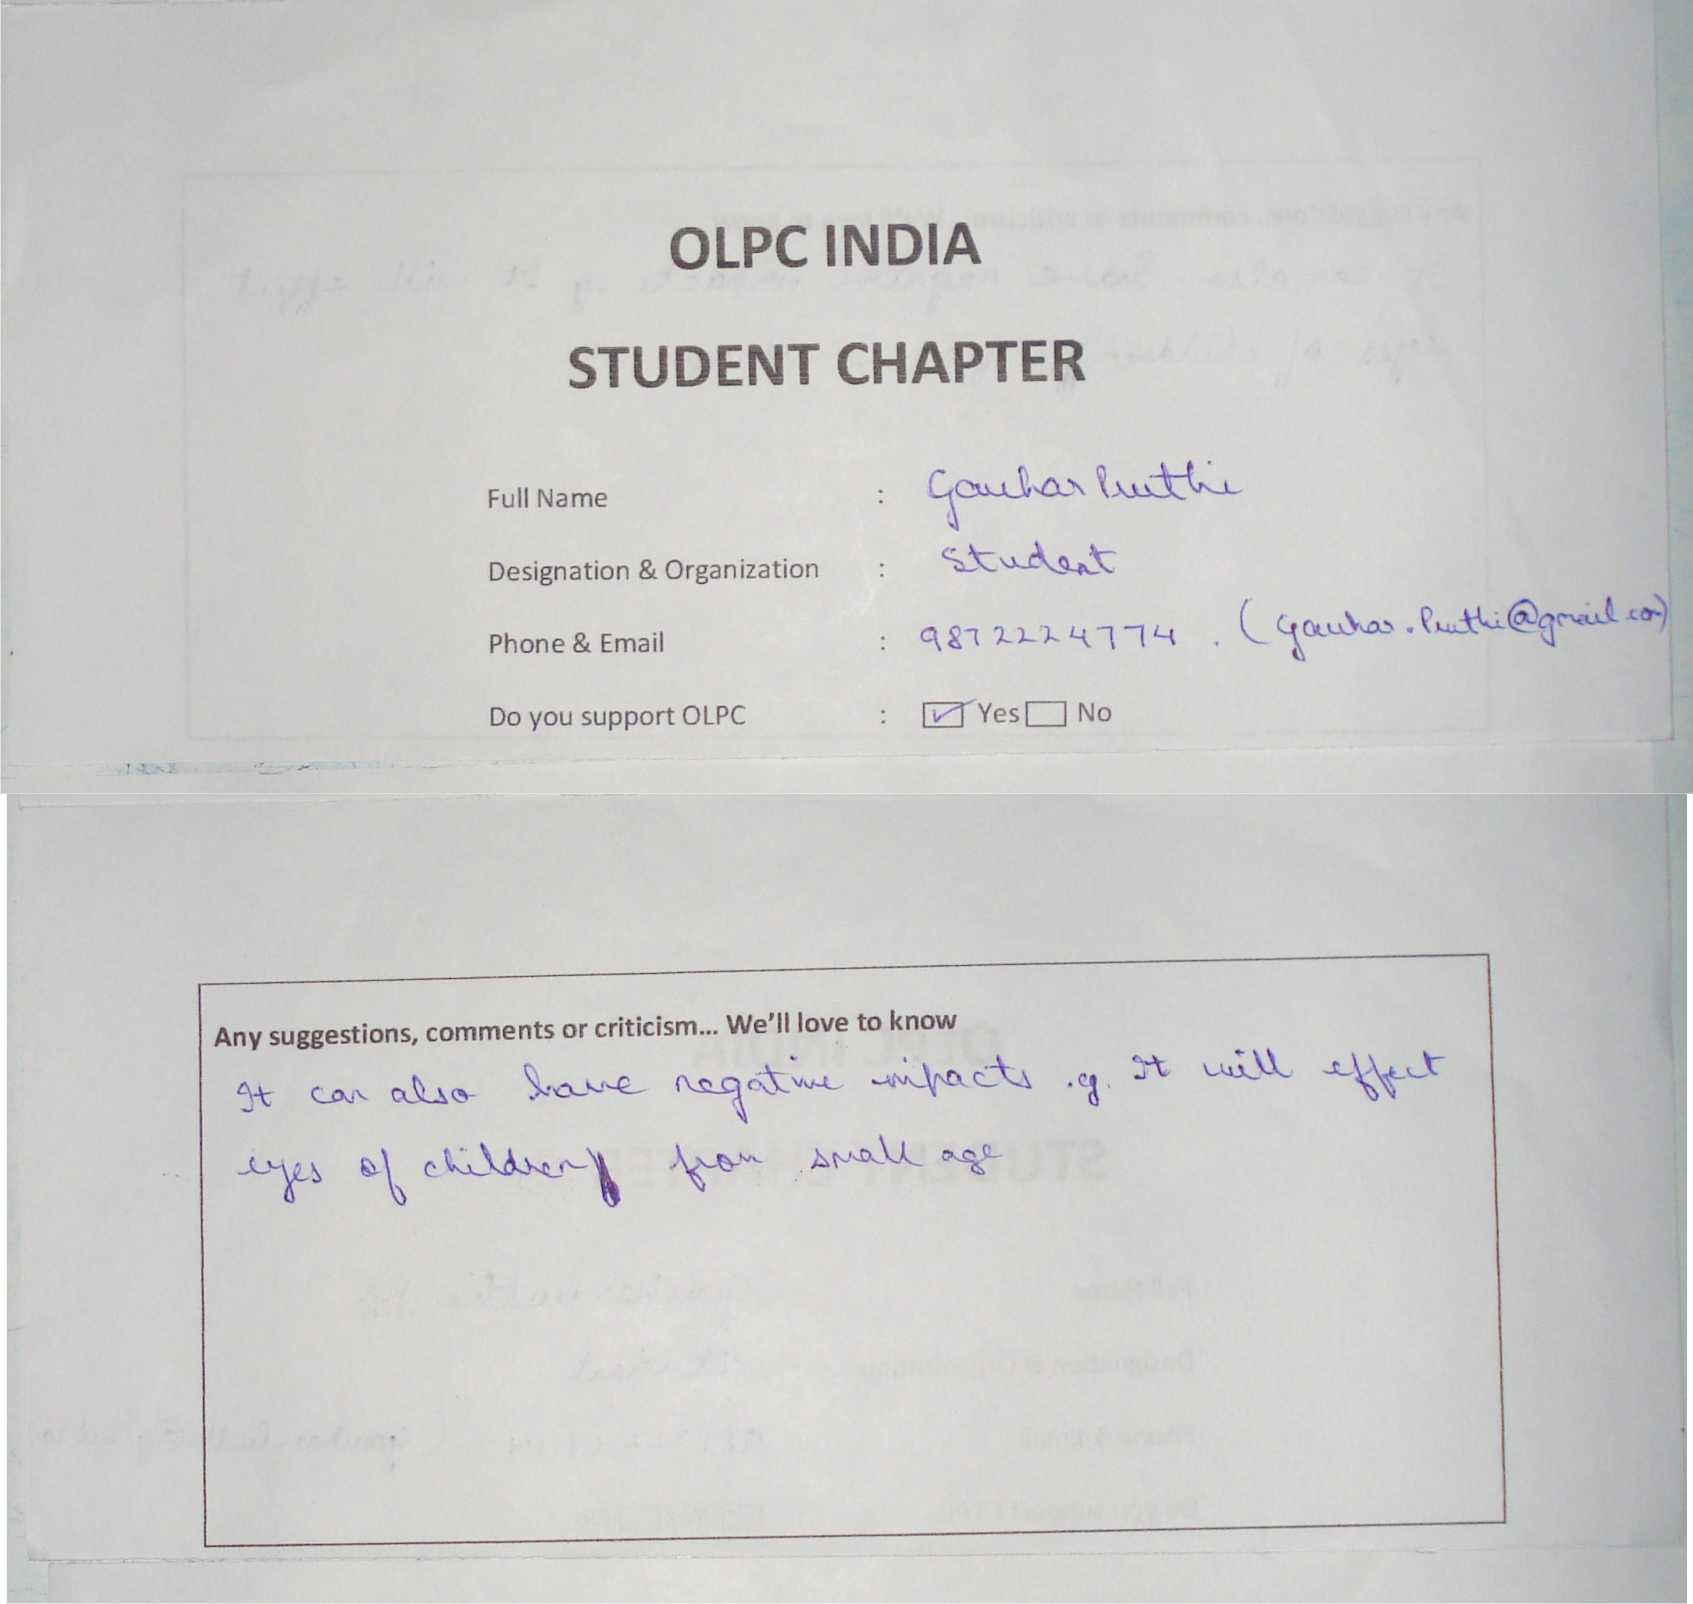 OLPC INDIA
STUDENT CHAPTER
Full Name : Gauhar Pruthi
Designation & Organization : Student
Phone & Email : 9872224774 . (gauhar.Pruthi@gmail.com)
Do you support OLPC : Yes No
Any suggestions, comments or criticism... We'll love to know
It can also have negative impacts .g. It will effect
eyes of children from small age